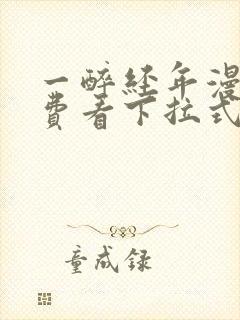 一醉经年漫
费看下拉式
童成录